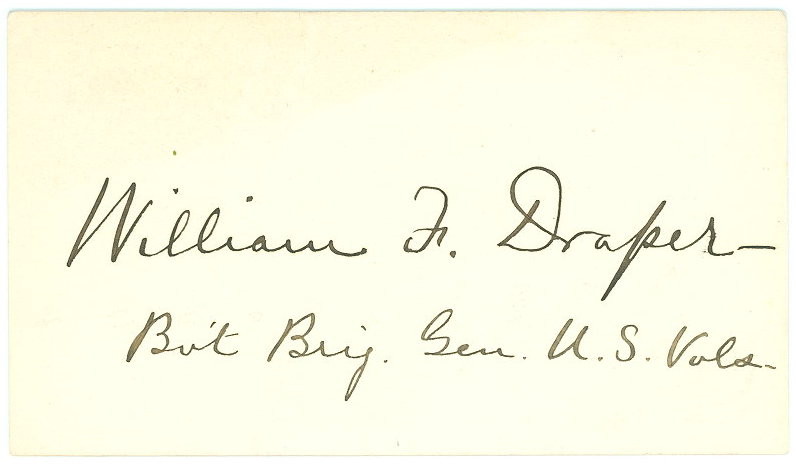 William F. Draper-
Bv't Brig. Gen. U.S. Vols-